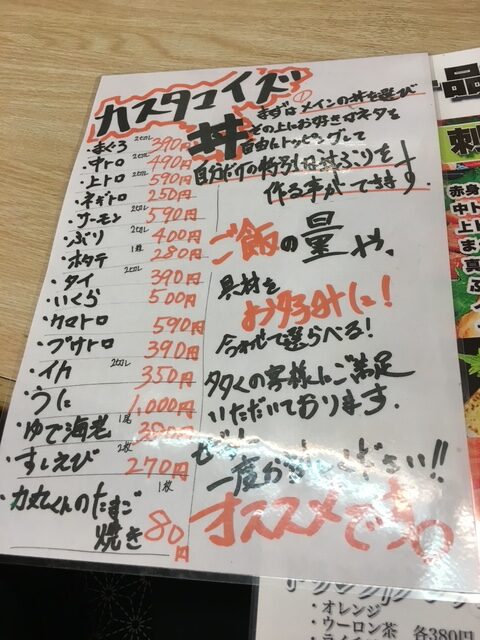 カスタマイズ
丼
・まぐろ 2切れ 390円
・中トロ 2切れ 490円
・上トロ 2切れ 590円
・ネギトロ 250円
・サーモン 2切れ 590円
・ぶり 2切れ 400円
・ホタテ 1枚 280円
・タイ 2切れ 390円
・いくら 500円
・カマトロ 590円
・ブリトロ 390円
・イカ 2切れ 350円
・うに 1,000円
・ゆで海老 1尾
・すしえび 2枚 270円
・力丸くんのたまご焼き 1枚 80円
①まずはメインの丼を選び
その上にお好きなネタを
自由にトッピングして
自分だけの特別な丼ぶりを
作る事ができます。
ご飯の量や、
具材を
お好みに!
合わせて選らべる!
多くの客様にご満足
いただいております。
ぜひ
一度お試し下さい!!
オススメです
一品
刺
赤身
中ト
上
オレンジ
・ウーロン茶 各380円